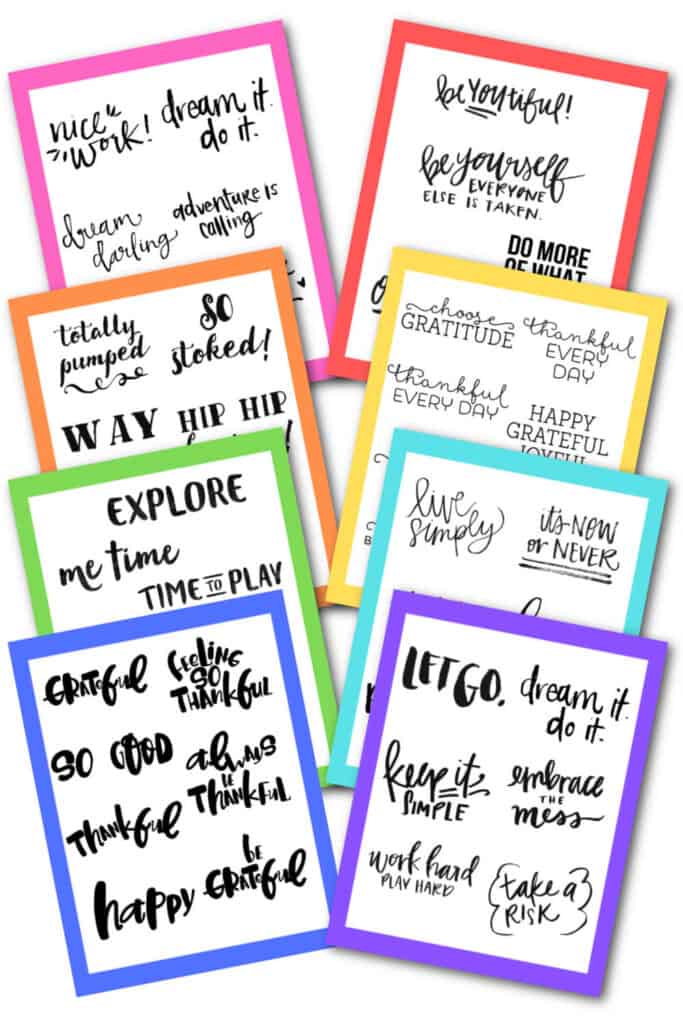 nice work!
dream it.
do it.
dream darling
adventure is calling
be YOUtiful!
be yourself
EVERYONE
ELSE IS TAKEN.
DO MORE
OF WHAT
totally pumped
SO stoked!
WAY
HIP HIP
choose
GRATITUDE
thankful
EVERY
DAY
thankful
EVERY DAY
HAPPY
GRATEFUL
JOYFUL
EXPLORE
me time
TIME TO PLAY
live simply
it's NOW
or NEVER
GRATEFUL
FEELING
SO
THANKFUL
SO GOOD
always
BE
THANKFUL
THANKFUL
happy
BE
GRATEFUL
LET GO.
dream it.
do it.
keep it
SIMPLE
embrace
THE
mess
work hard
PLAY HARD
{take a
RISK}